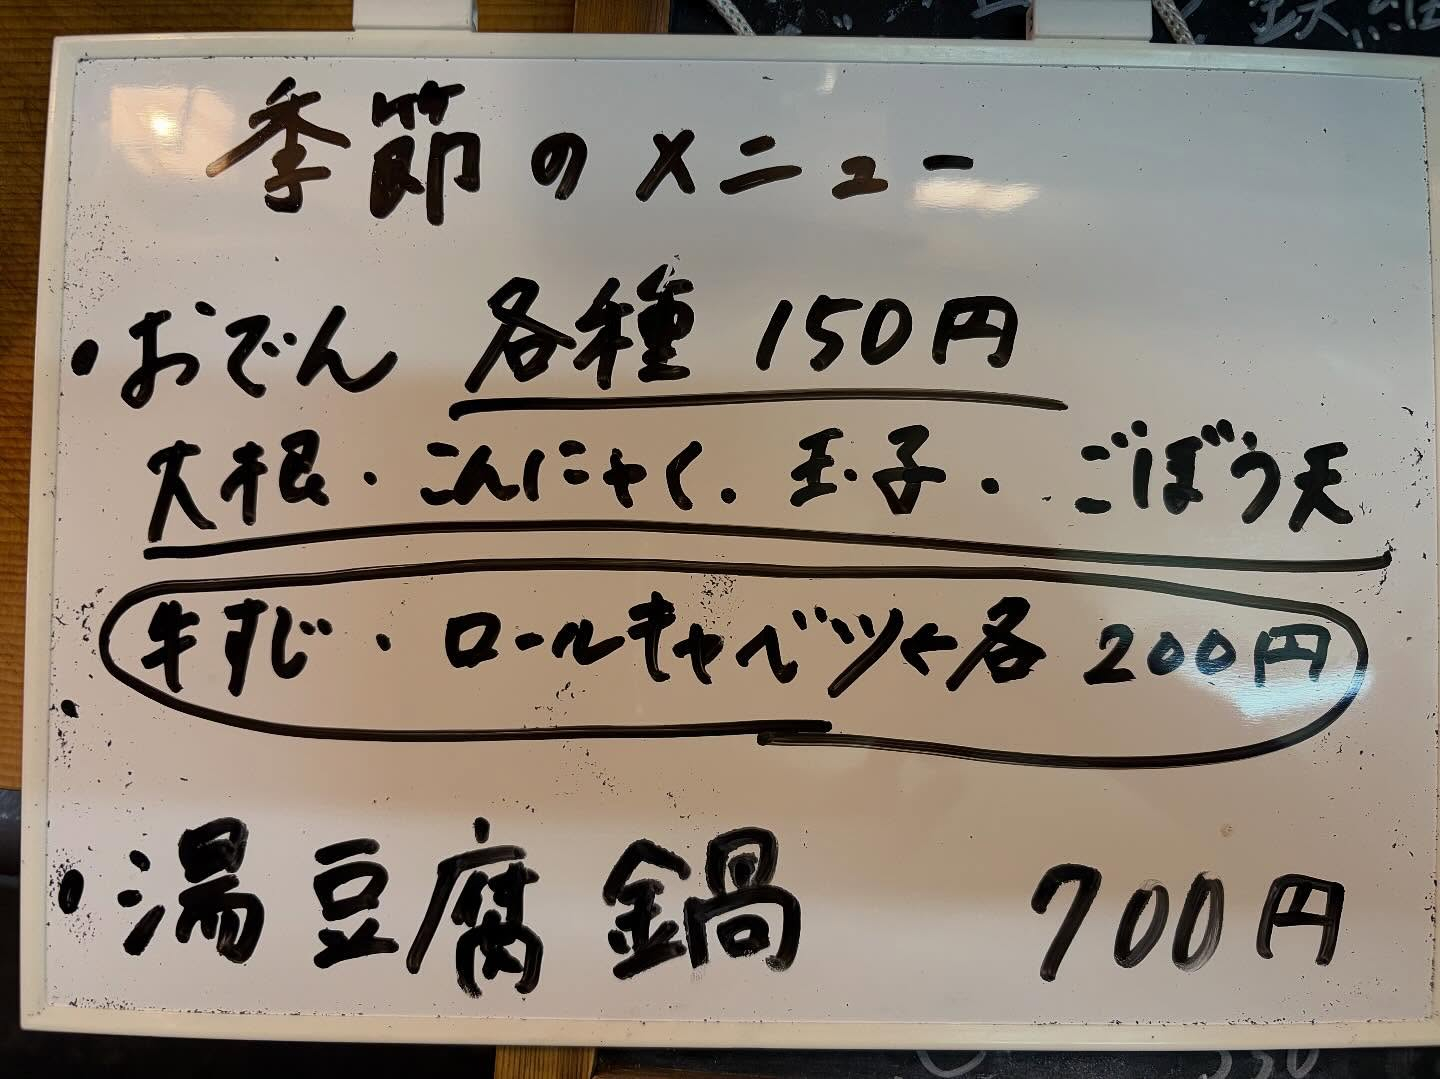 季節のメニュー
・おでん 各種 150円
大根・こんにゃく・玉子・ごぼう天
牛すじ・ロールキャベツ←各 200円
・湯豆腐鍋 700円